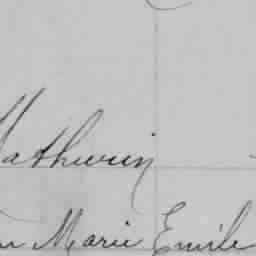 Mathurin
Marie Emile